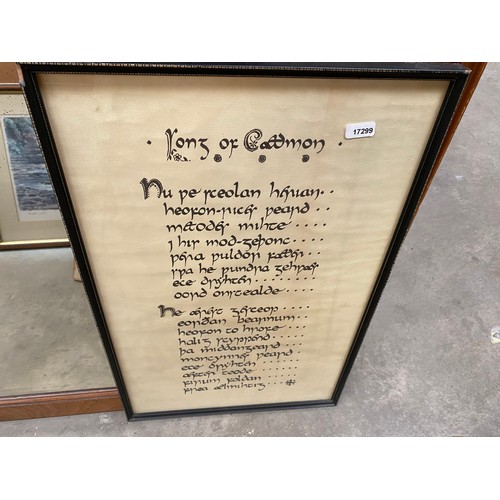 · Song of Caedmon ·
17299
Nu pe sceolan herian . .
heofon-rices peard . . .
metodes mihte . . . .
⁊ his mod-geþonc . . . .
þera puldor fæder . . .
spa he pundra gehpæs
ece dryhten . . . . . . . .
oord onstealde . . . .
He ærest gesceop . . . .
eorðan bearnum . . .
heofon to hrofe . . . .
halig scyppend . . . .
þa middangeard . . . .
moncynnes peard . . .
ece dryhten . . . . . .
æfter teode . . . . . .
firum foldan . . . . .
frea ælmihtig . . .